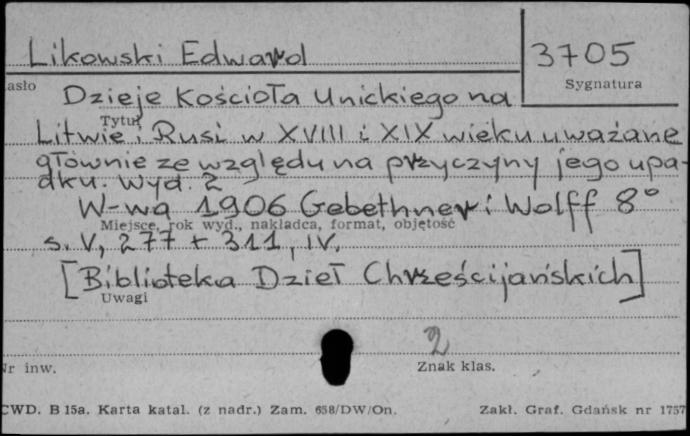 Likowski Edward
3705
asło
Sygnatura
Dzieje Kościoła Unickiego na
Tytuł
Litwie i Rusi w XVIII i XIX wieku uważane
głównie ze względu na przyczyny jego upa-
dku. Wyd. 2
W-wa 1906 Gebethner i Wolff 8°
Miejsce, rok wyd., nakładca, format, objętość
s. V, 277 + 311, IV.
[Biblioteka Dzieł Chrześcijańskich]
Uwagi
2
Nr inw.
Znak klas.
CWD. B 15a. Karta katal. (z nadr.) Zam. 658/DW/On.
Zakł. Graf. Gdańsk nr 1757